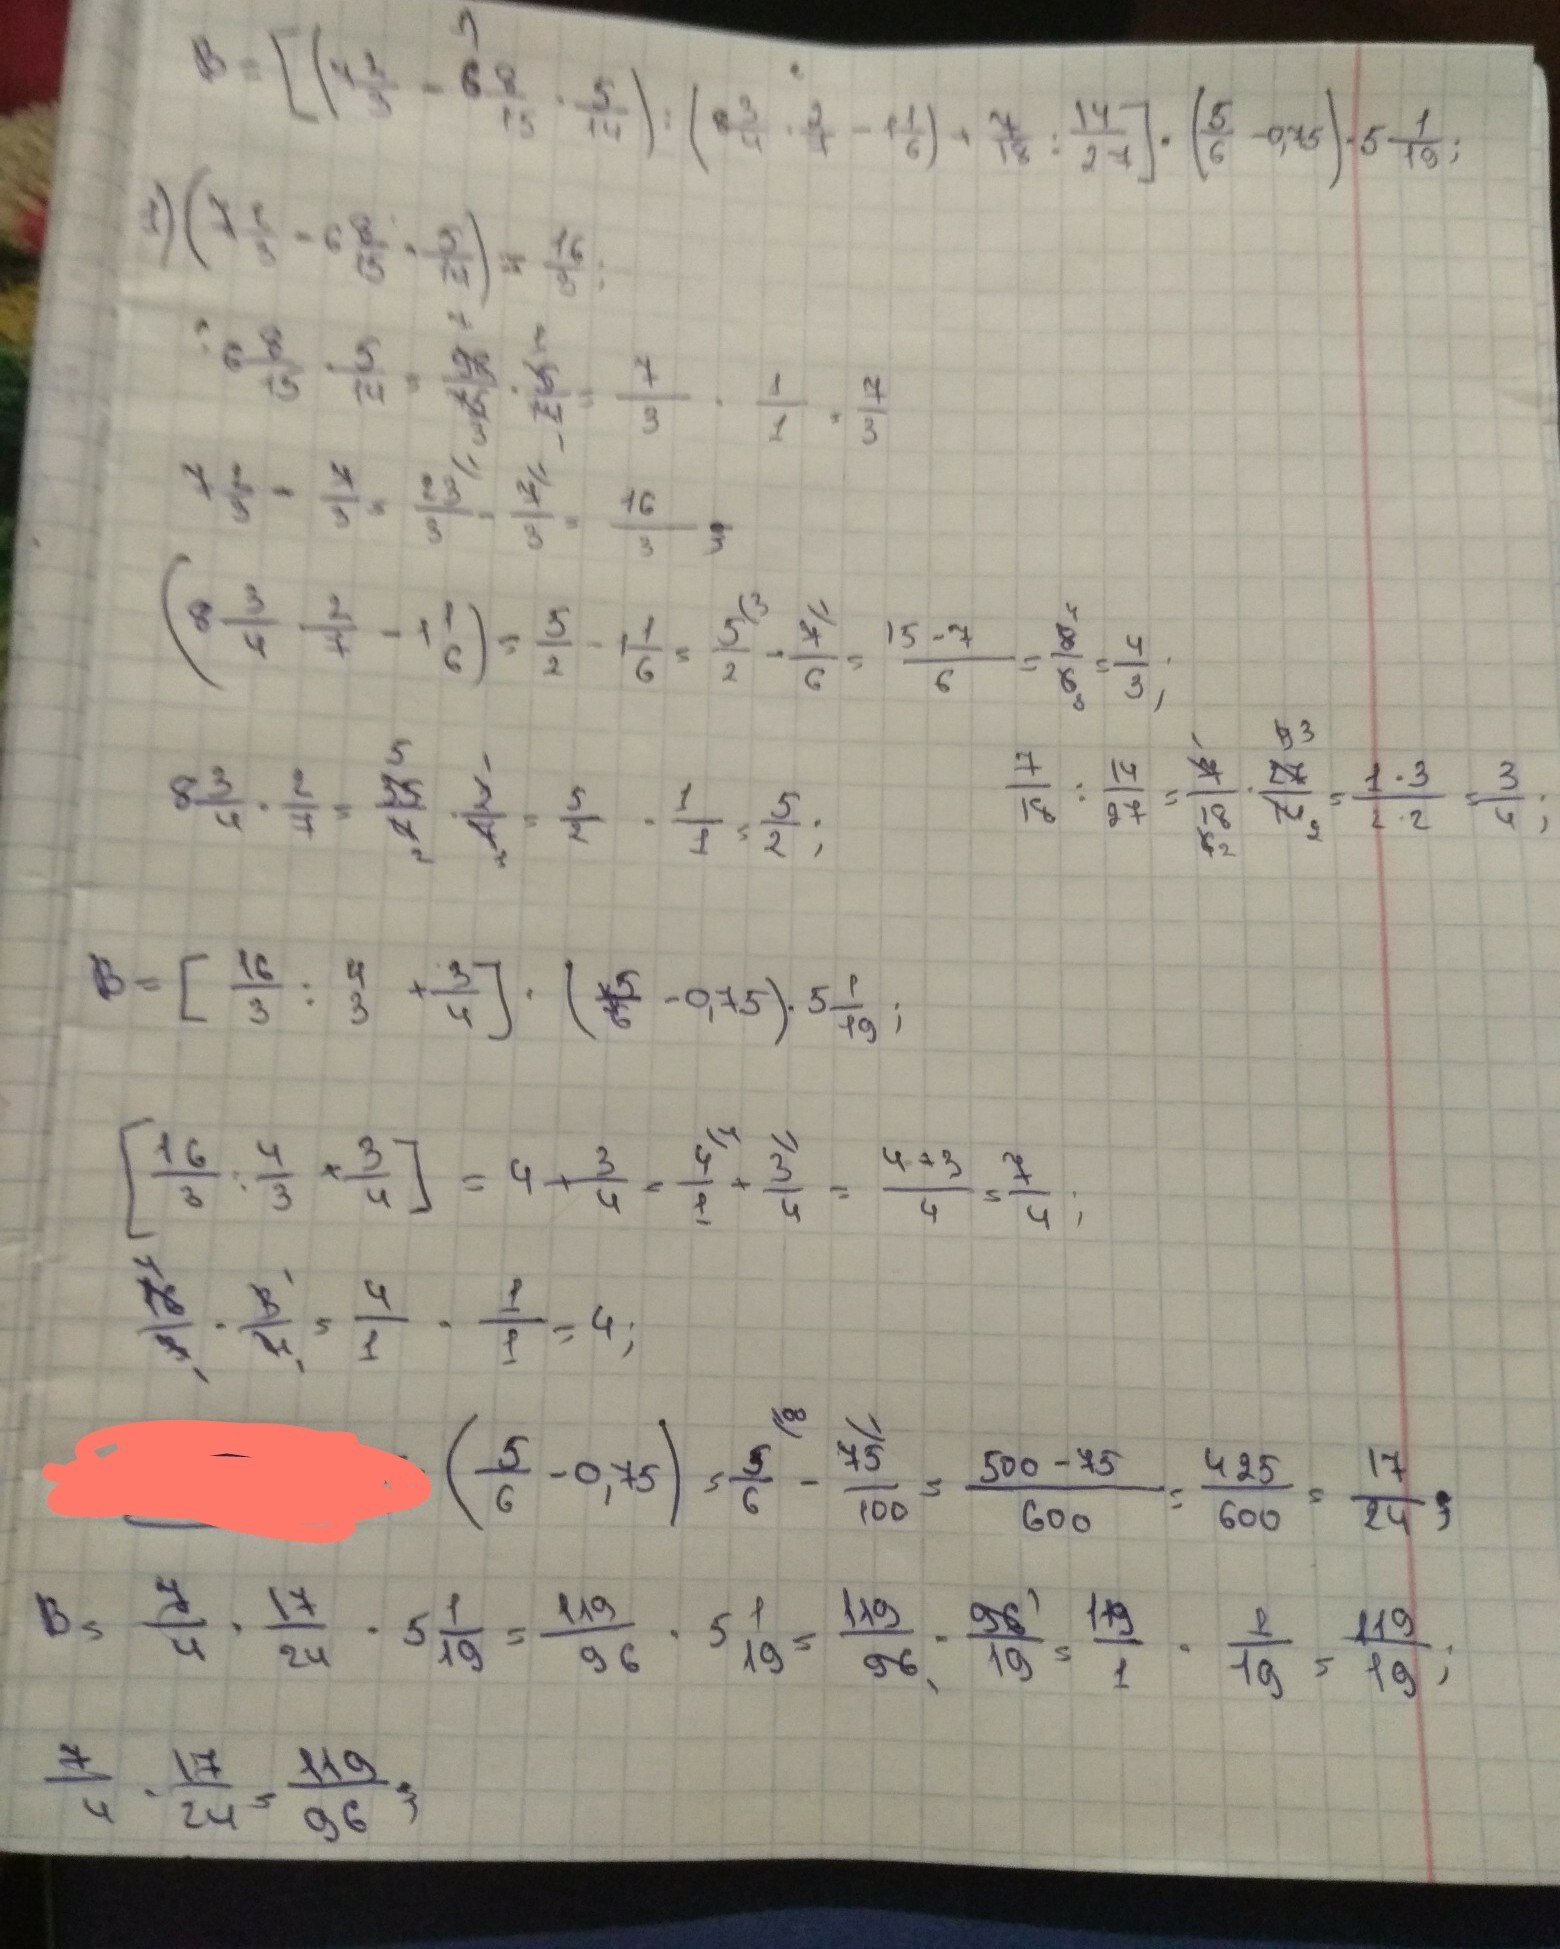 B = [(7 2/3 - 6 8/15 · 5/14) : (8 3/4 · 2/7 - 1 1/6) + 7/18 : 14/27] · (5/6 - 0,75) · 5 1/19;
1) (7 2/3 - 6 8/15 · 5/14) = 16/3;
6 8/15 · 5/14 = 98/15 · 5/14 = 7/3 · 1/1 = 7/3
7 2/3 - 7/3 = 23/3 - 7/3 = 16/3;
(8 3/4 · 2/7 - 1 1/6) = 5/2 - 1 1/6 = 5/2 - 7/6 = 15-7/6 = 8/6 = 4/3;
8 3/4 · 2/7 = 35/4 · 2/7 = 5/2 · 1/1 = 5/2; 7/18 : 14/27 = 7/18 · 27/14 = 1·3/2·2 = 3/4;
B = [16/3 : 4/3 + 3/4] · (5/6 - 0,75) · 5 1/19;
[16/3 : 4/3 + 3/4] = 4 + 3/4 = 4/1 + 3/4 = 4+3/4 = 7/4;
16/3 · 3/4 = 4/1 · 1/1 = 4;
(5/6 - 0,75) = 5/6 - 75/100 = 500-75/600 = 425/600 = 17/24;
B = 7/4 · 17/24 · 5 1/19 = 119/96 · 5 1/19 = 119/96 · 96/19 = 119/1 · 1/19 = 119/19;
7/4 · 17/24 = 119/96;